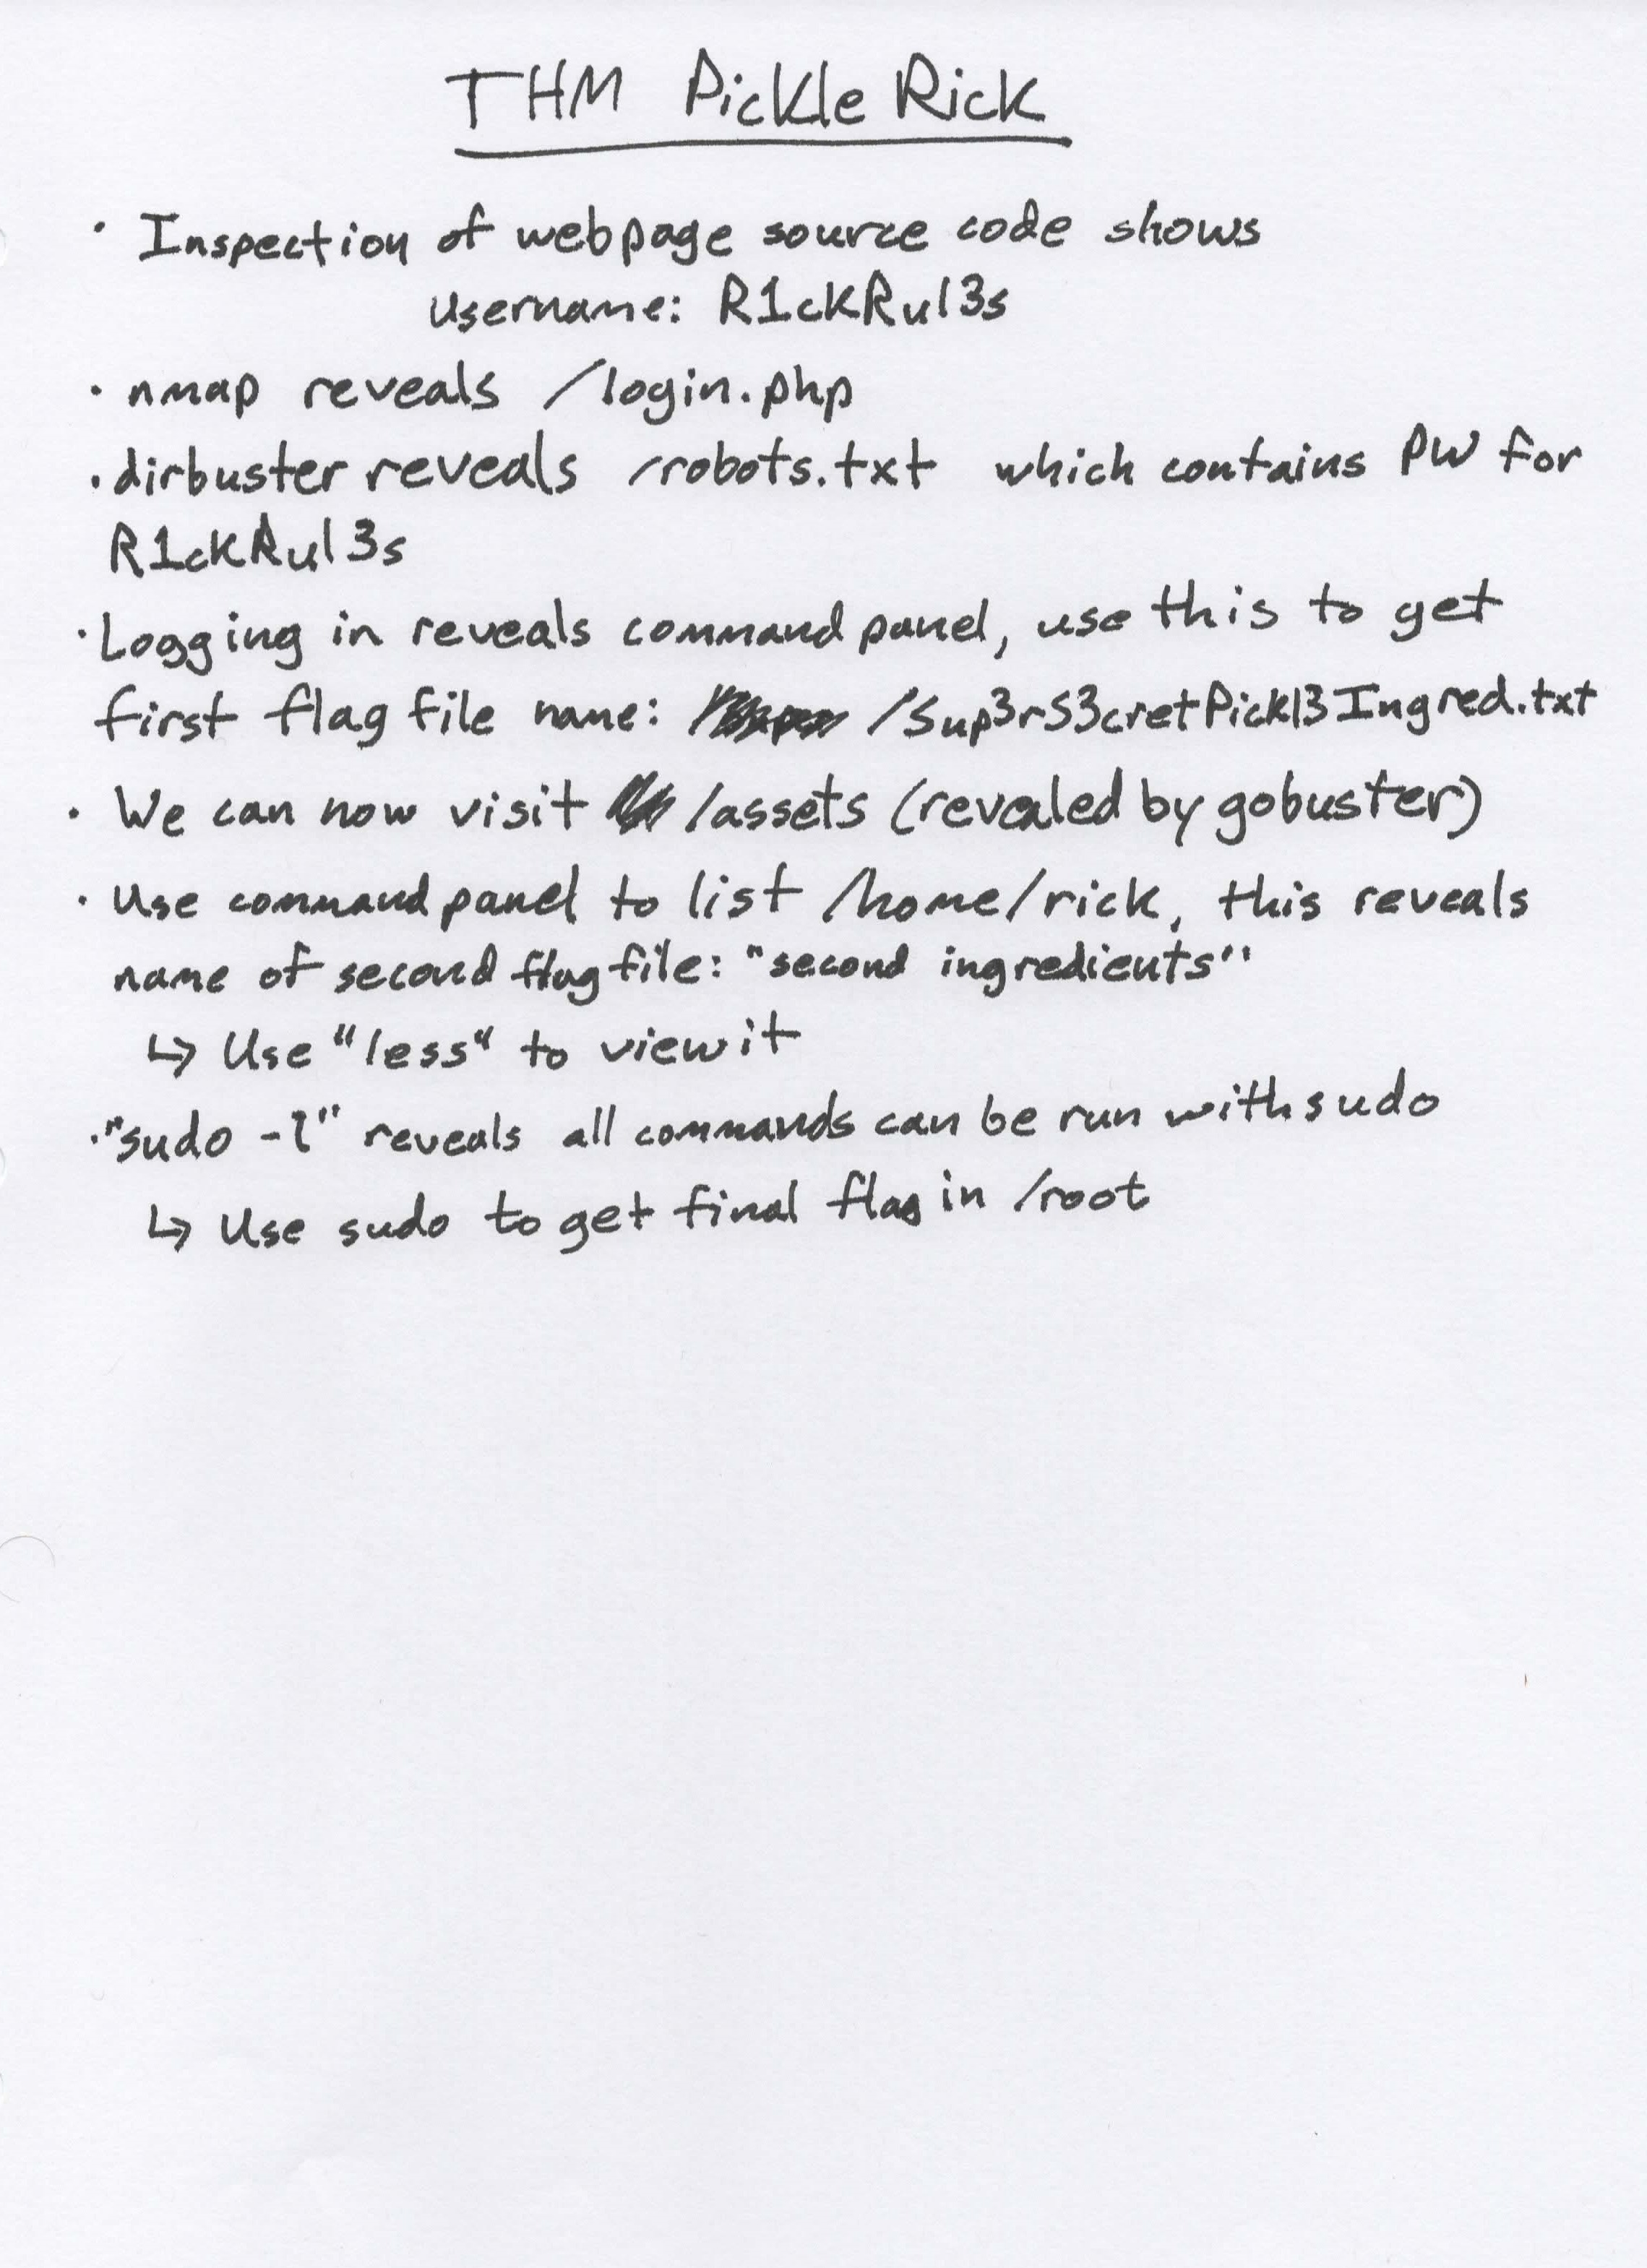 THM Pickle Rick
· Inspection of webpage source code shows
Username: R1ckRul3s
· nmap reveals /login.php
· dirbuster reveals /robots.txt which contains PW for
R1ckRul3s
· Logging in reveals command panel, use this to get
first flag file name: /Sup3rS3cretPickl3Ingred.txt
· We can now visit /assets (revealed by gobuster)
· Use command panel to list /home/rick, this reveals
name of second flag file: "second ingredients"
↳ Use "less" to view it
· "sudo -l" reveals all commands can be run with sudo
↳ Use sudo to get final flag in /root